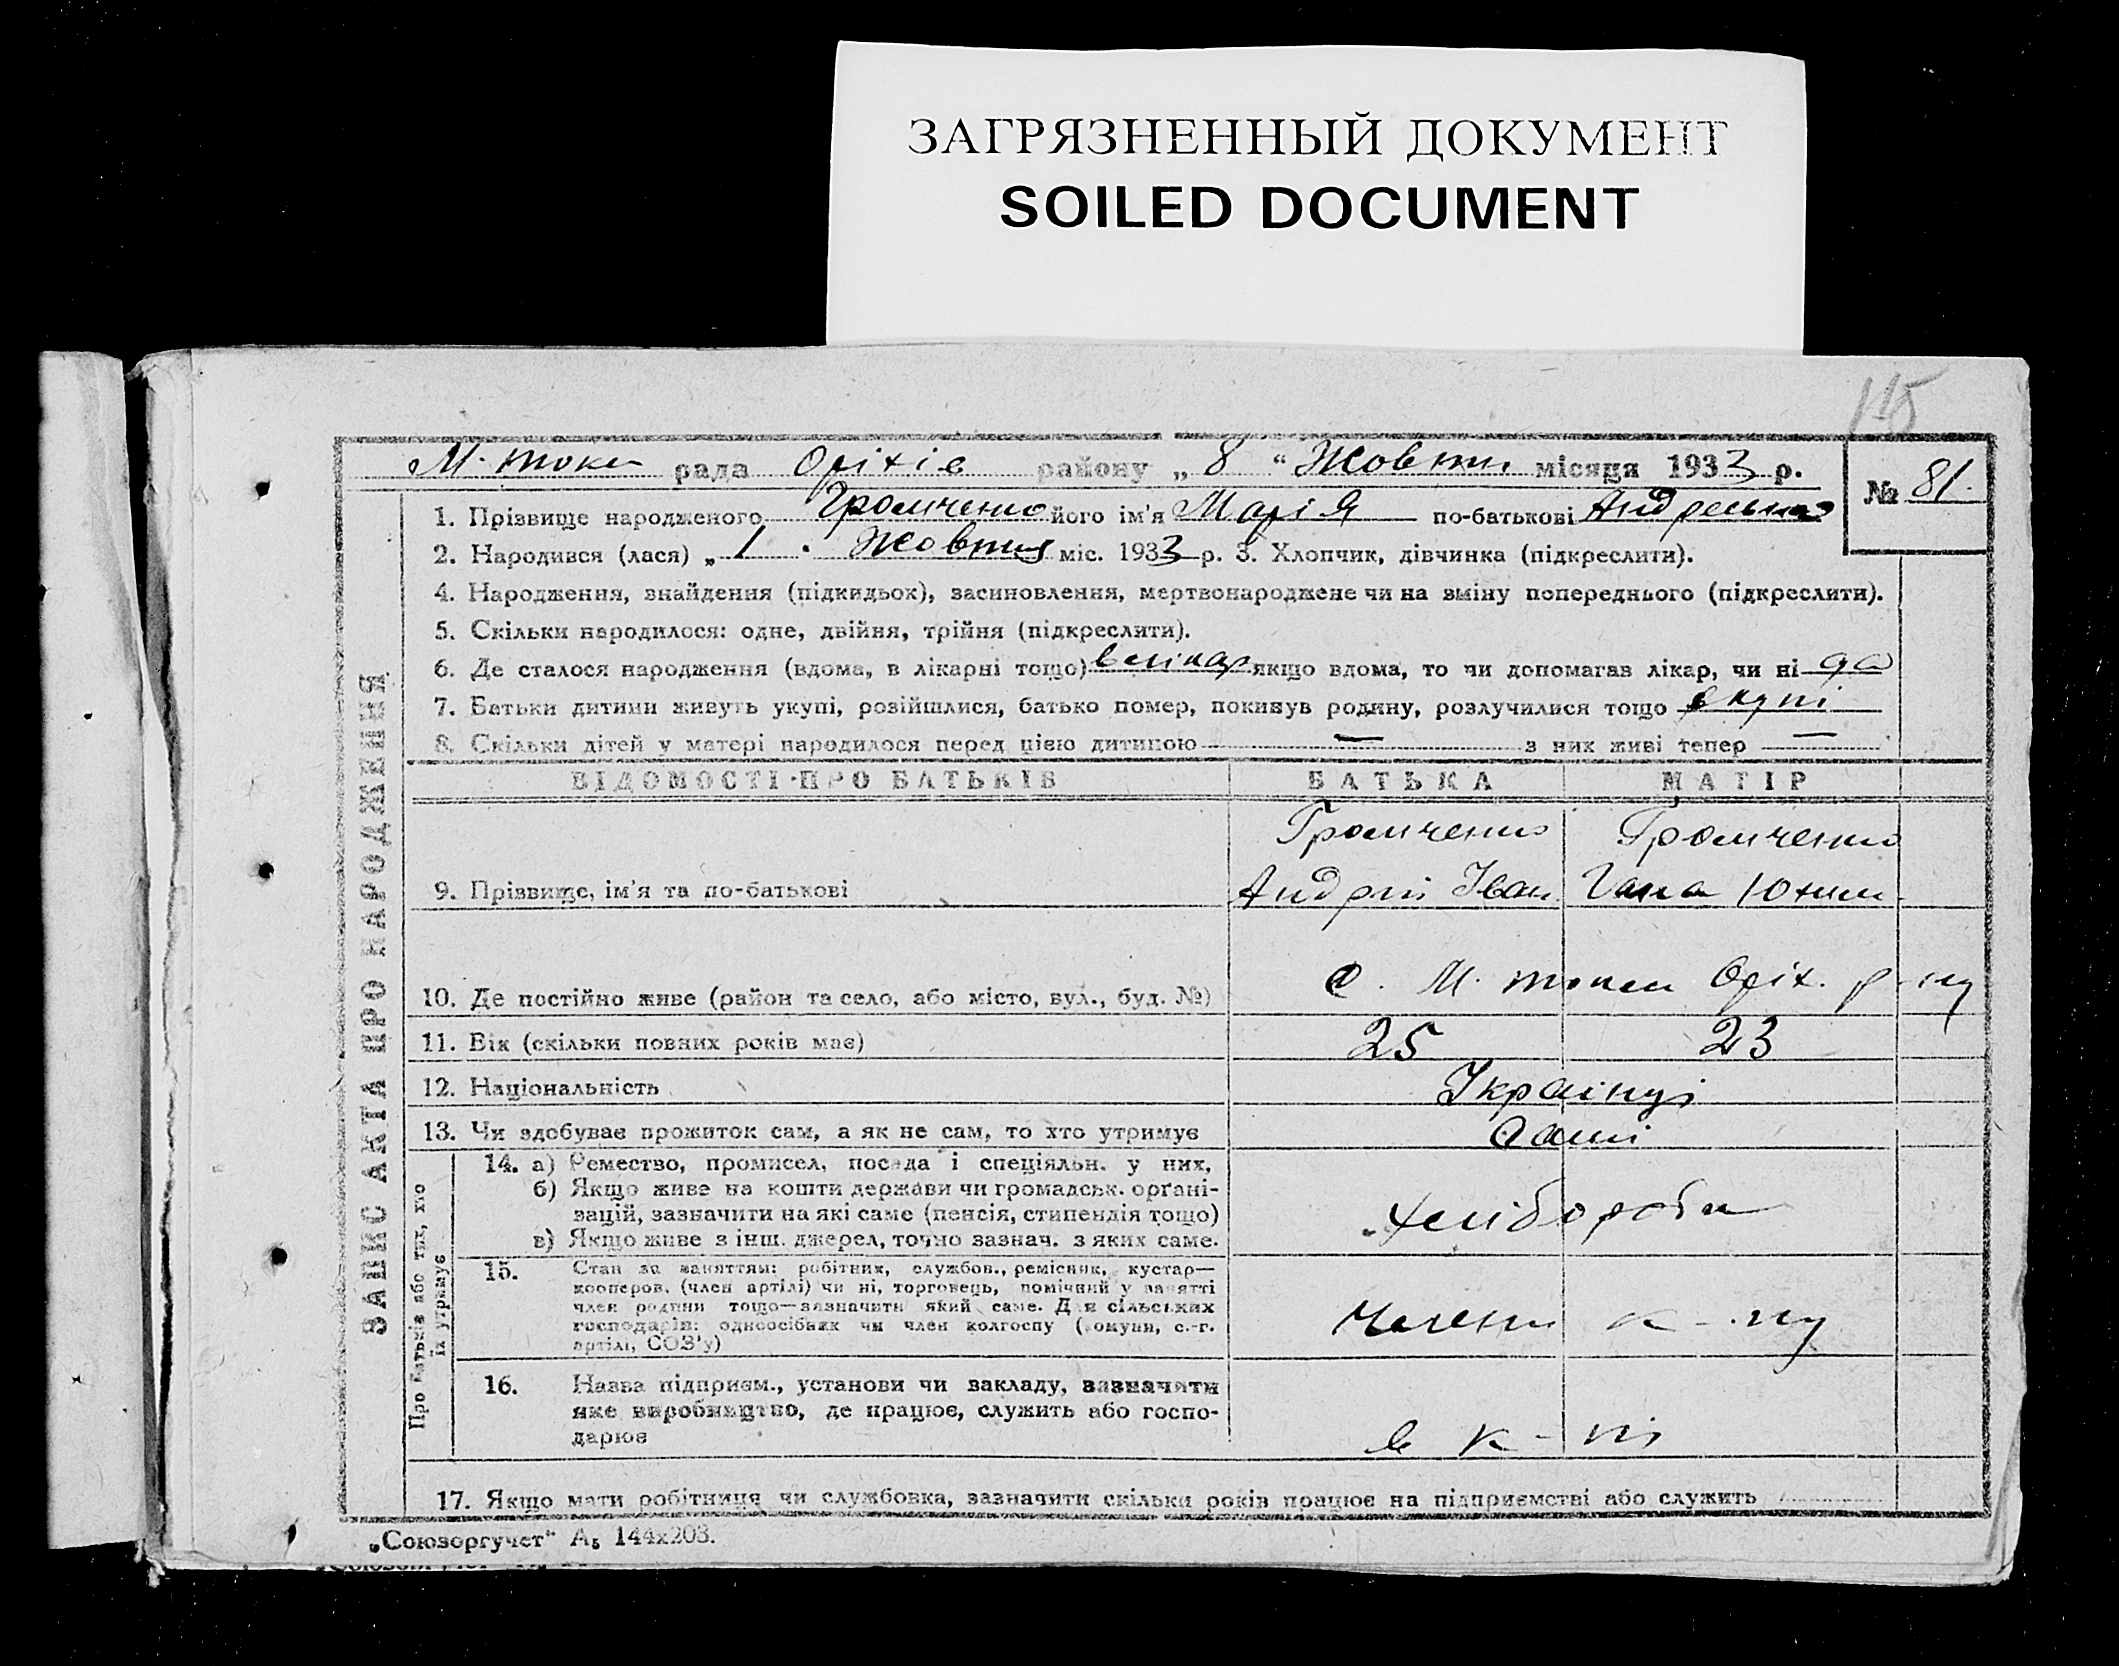 ЗАГРЯЗНЕННЫЙ ДОКУМЕНТ
SOILED DOCUMENT
115
М. токм рада Оріхів району „8“ Жовтня місяця 1933 р.
№ 81.
1. Прізвище народженого Громченко його ім'я Марія по-батькові Андреевна
2. Народився (лася) „1 . Жовтня міс. 1933 р. 3. Хлопчик, дівчинка (підкреслити).
4. Народження, знайдення (підкидьох), засиновлення, мертвонароджене чи на зміну попереднього (підкреслити).
5. Скільки народилося: одне, двійня, трійня (підкреслити).
6. Де сталося народження (вдома, в лікарні тощо) в лікар якщо вдома, то чи допомагав лікар, чи ні да
7. Батьки дитини живуть укупі, розійшлися, батько помер, покинув родину, розлучилися тощо вкупі
8. Скільки дітей у матері народилося перед цією дитиною — з них живі тепер —
ЗАПИС АКТА ПРО НАРОДЖЕННЯ
ВІДОМОСТІ ПРО БАТЬКІВ БАТЬКА МАТІР
Громченко Громченко
9. Прізвище, ім'я та по-батькові Андрій Іван. Гана Юхим.
10. Де постійно живе (район та село, або місто, вул., буд. №) с. М. токм Оріх. р-ну
11. Вік (скільки повних років має) 25 23
12. Національність Українці
13. Чи здобуває прожиток сам, а як не сам, то хто утримує сами
Про батьків або тих, хто
їх утримує
14. а) Ремество, промисел, посада і спеціяльн. у них,
б) Якщо живе на кошти держави чи громадськ. орґані-
зацій, зазначити на які саме (пенсія, стипендія тощо)
в) Якщо живе з інш. джерел, точно зазнач. з яких саме.
хліборобы
15. Стан за заняттям: робітник, службов., ремісник, кустар—
кооперов. (член артілі) чи ні, торговець, помічний у занятті
член родини тощо—зазначити який саме. Для сільських
господарів: одноосібник чи член колгоспу (комуни, с.-г.
артілі, СОЗ'у)
члени к-пу
16. Назва підприєм., установи чи закладу, зазначити
яке виробництво, де працює, служить або госпо-
дарює
в к-пі
17. Якщо мати робітниця чи службовка, зазначити скільки років працює на підприємстві або служить
„Союзоргучет“ А₅ 144х203.